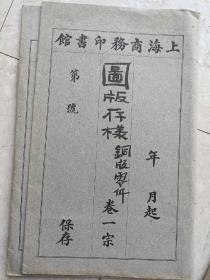 上海商務印書館
年 月起
圖版存樣 銅版零件 卷一宗
第 號
保存